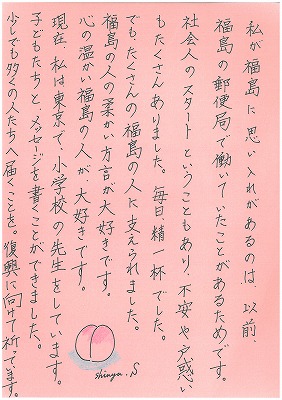 私が福島に思い入れがあるのは、以前、
福島の郵便局で働いていたことがあるためです。
社会人のスタートということもあり、不安や戸惑い
もたくさんありました。毎日精一杯でした。
でも、たくさんの福島の人に支えられました。
福島の人の柔かい方言が大好きです。
心の温かい福島の人が大好きです。
現在、私は東京で、小学校の先生をしています。
子どもたちと、メッセージを書くことができました。
少しでも多くの人たちへ届くことを。復興に向けて祈っています。
shinya.S